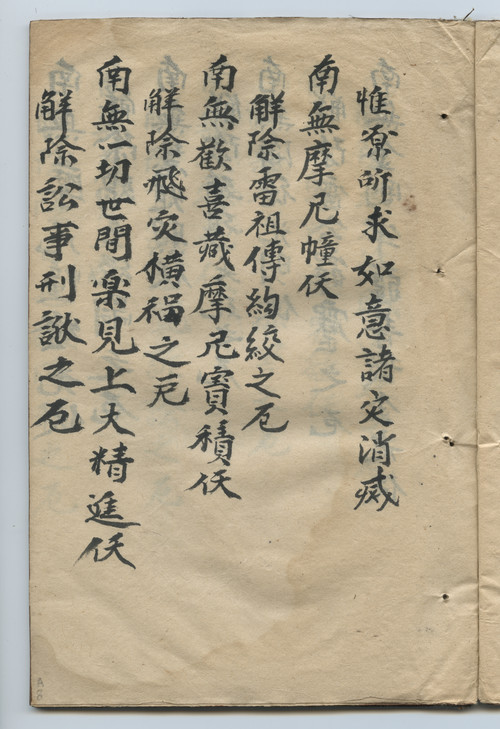 惟愿所求如意諸灾消滅
南無摩尼幢仸
解除雷祖傳絢絞之厄
南無歡喜藏摩尼寳積仸
解除飛灾横禍之厄
南無一切世間楽見上大精進仸
解除訟事刑獄之厄